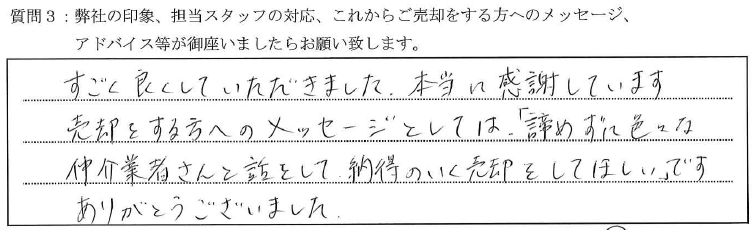 質問3：弊社の印象、担当スタッフの対応、これからご売却をする方へのメッセージ、
アドバイス等が御座いましたらお願い致します。
すごく良くしていただきました。本当に感謝しています
売却をする方へのメッセージとしては、「諦めずに色々な
仲介業者さんと話をして、納得のいく売却をしてほしい」です
ありがとうございました。